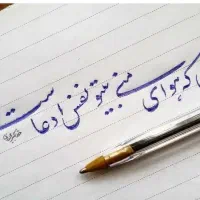 که هوای منی بیتو نفس ادعاست